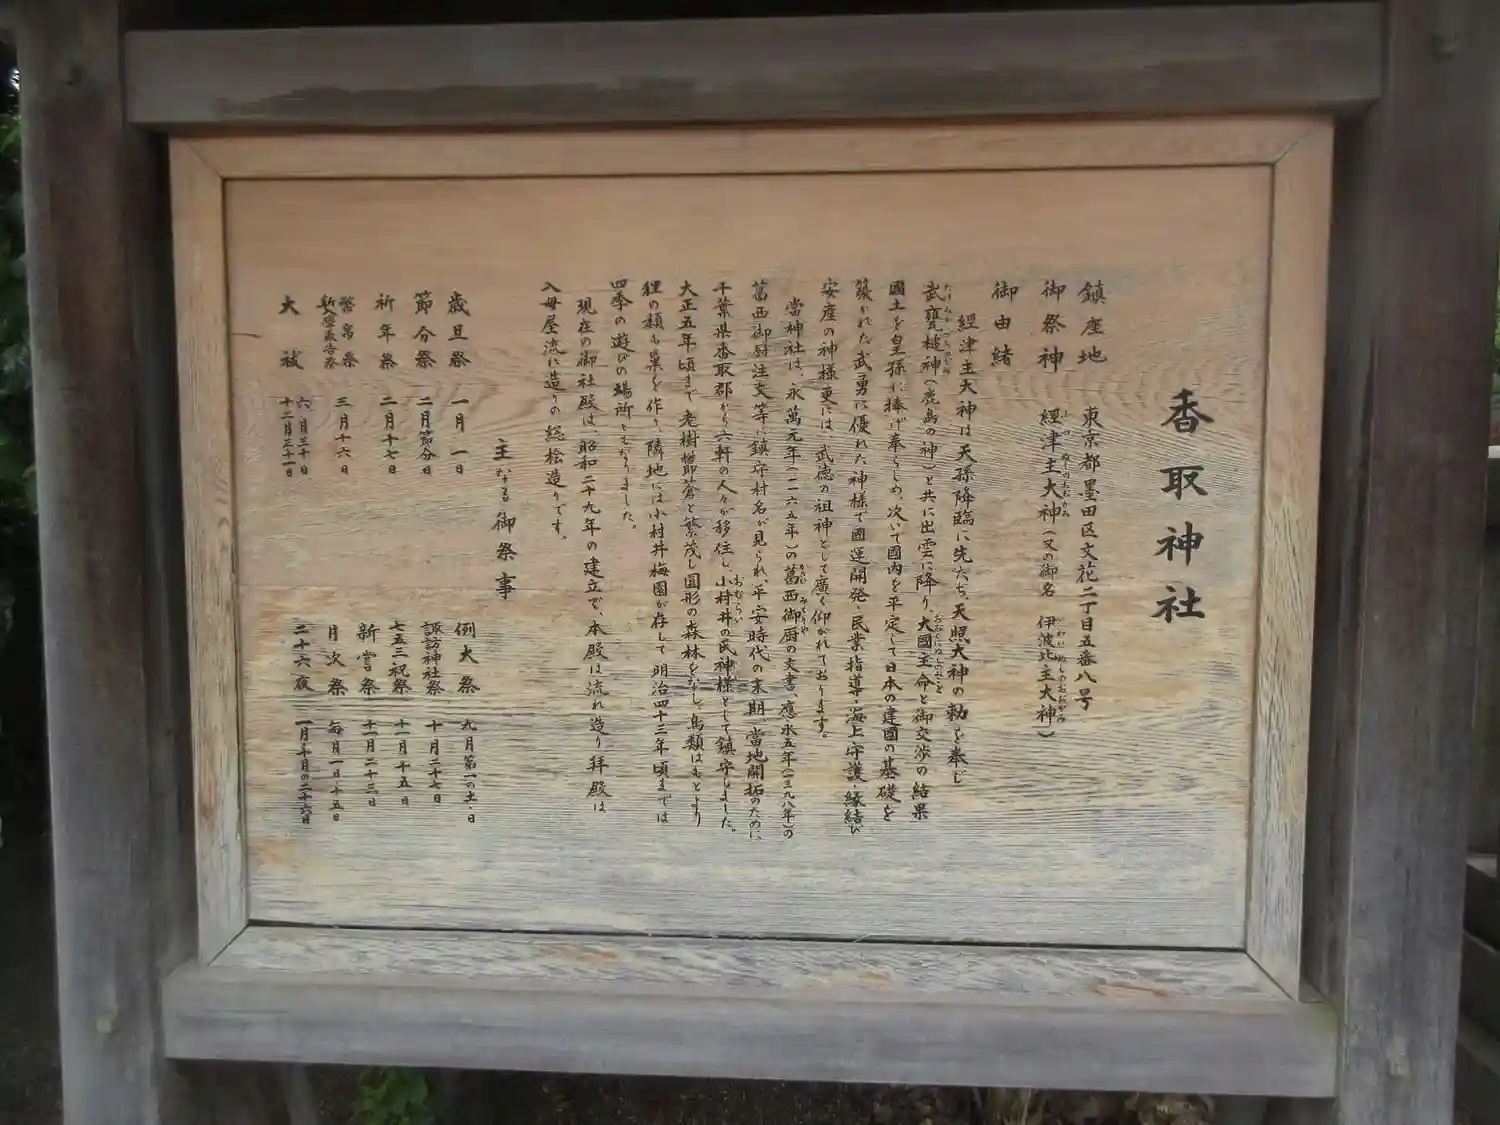 香取神社
鎮座地　東京都墨田区文花二丁目五番八号
御祭神　經津主大神（又の御名　伊波比主大神）
御由緒
經津主大神は天孫降臨に先だち、天照大神の勅を奉じ
武甕槌神（鹿島の神）と共に出雲に降り、大國主命と御交渉の結果
國土を皇孫に捧げ奉らしめ、次いで國内を平定して日本の建國の基礎を
築かれた武勇に優れた神様で國運開発・民業指導・海上守護・縁結び
安産の神様更には、武徳の祖神として廣く仰がれております。
當神社は、永萬元年（一一六五年）の葛西御厨の文書、應永五年（一三九八年）の
葛西御厨注文等に鎮守村名が見られ、平安時代の末期、當地開拓のために
千葉県香取郡から六軒の人々が移住し、小村井の氏神様として鎮守しました。
大正五年頃まで老樹欝蒼と繁茂し園形の森林をなし、鳥類はもとより
狸の類も巣を作り、隣地には小村井梅園が存して明治四十三年頃までは
四季の遊びの場所ともなりました。
現在の御社殿は、昭和二十九年の建立で、本殿は流れ造り拝殿は
入母屋流れ造りの総桧造りです。
主なる御祭事
歳旦祭　一月一日
節分祭　二月節分日
祈年祭　二月十七日
幣帛祭　三月十六日
大祓　六月三十日
十二月三十一日
例大祭　九月第一の土・日
諏訪神社祭　十月二十七日
七五三祝祭　十一月十五日
新嘗祭　十一月二十三日
月次祭　毎月一日・十五日
二十六夜